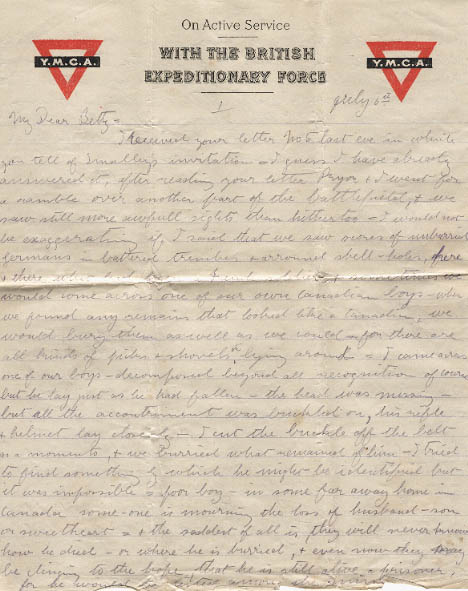 On Active Service
WITH THE BRITISH
EXPEDITIONARY FORCE
Y.M.C.A.
Y.M.C.A.
1
July 6th
My Dear Betty -
I Received your letter No 6 last eve in which
you tell of Smalleys invitation - I guess I have already
answered it, after reading your letter Pryor + I went for
a ramble over another part of the battlefield, + we
saw still more awfull sights than hitherto - I would not
be exagerating if I said that we saw scores of unburried
germans in battered trenches + arround shell-holes, here
+ there + sometimes we
would come across one of our own Canadian boys - when
we found any remains that looked like a Canadian, we
would bury them as well as we could - for there are
all kinds of picks + shovels lying around - I came across
one of our boys - decomposed beyond all recognition of course
but he lay just as he had fallen - the head was missing -
but all the accoutrement was buckled on, his rifle
+ helmet lay close by - I cut the buckle off the belt
as a momento, + we burried what remained of him - I tried
to find something by which he might be identified but
it was impossible - poor boy - in some far away home in
Canada some-one is mourning the loss of husband - son
or sweetheart - + the saddest of all is they will never know
how he died - or where he is burried, + even now they may
be clinging to the hope that he is still alive a prisoner,
for he would be among the